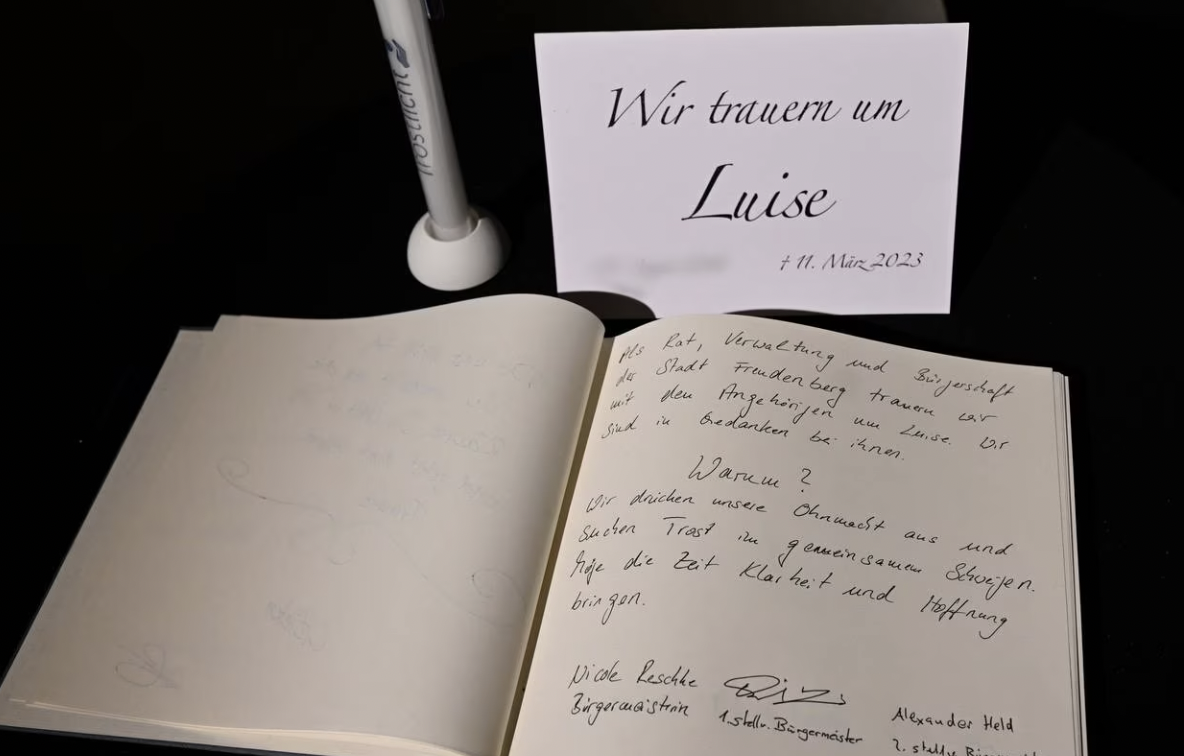 Trostlicht
Wir trauern um
Luise
† 11. März 2023
Als Rat, Verwaltung und Bürgerschaft
der Stadt Freudenberg trauern wir
mit den Angehörigen um Luise. Wir
sind in Gedanken bei ihnen.
Warum?
Wir drücken unsere Ohnmacht aus und
suchen Trost im gemeinsamen Schweigen.
Möge die Zeit Klarheit und Hoffnung
bringen.
Nicole Reschke
Bürgermeisterin
1. stellv. Bürgermeister
Alexander Held
2. stellv.